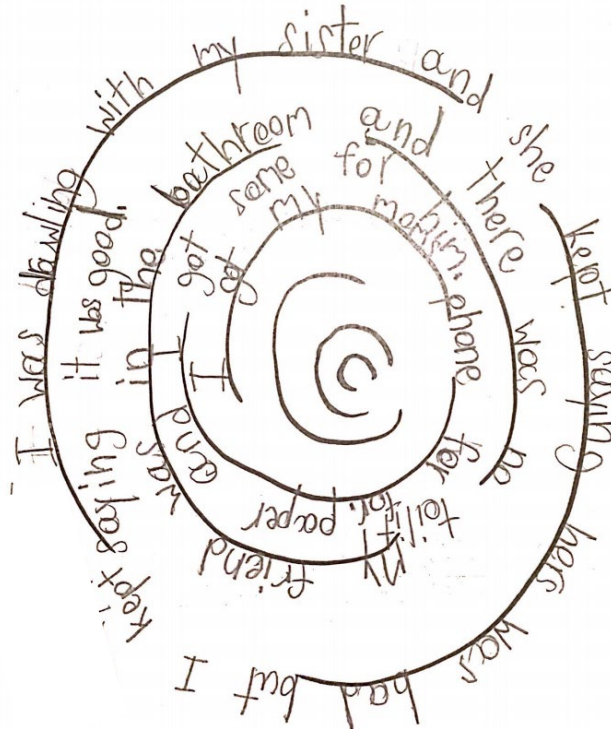 I was drawling with my sister and she kept saying hers was bad but I kept saying it was good.
My friend was in tha bathroom and there was no toilit paper and I got some for him.
I got my phone for